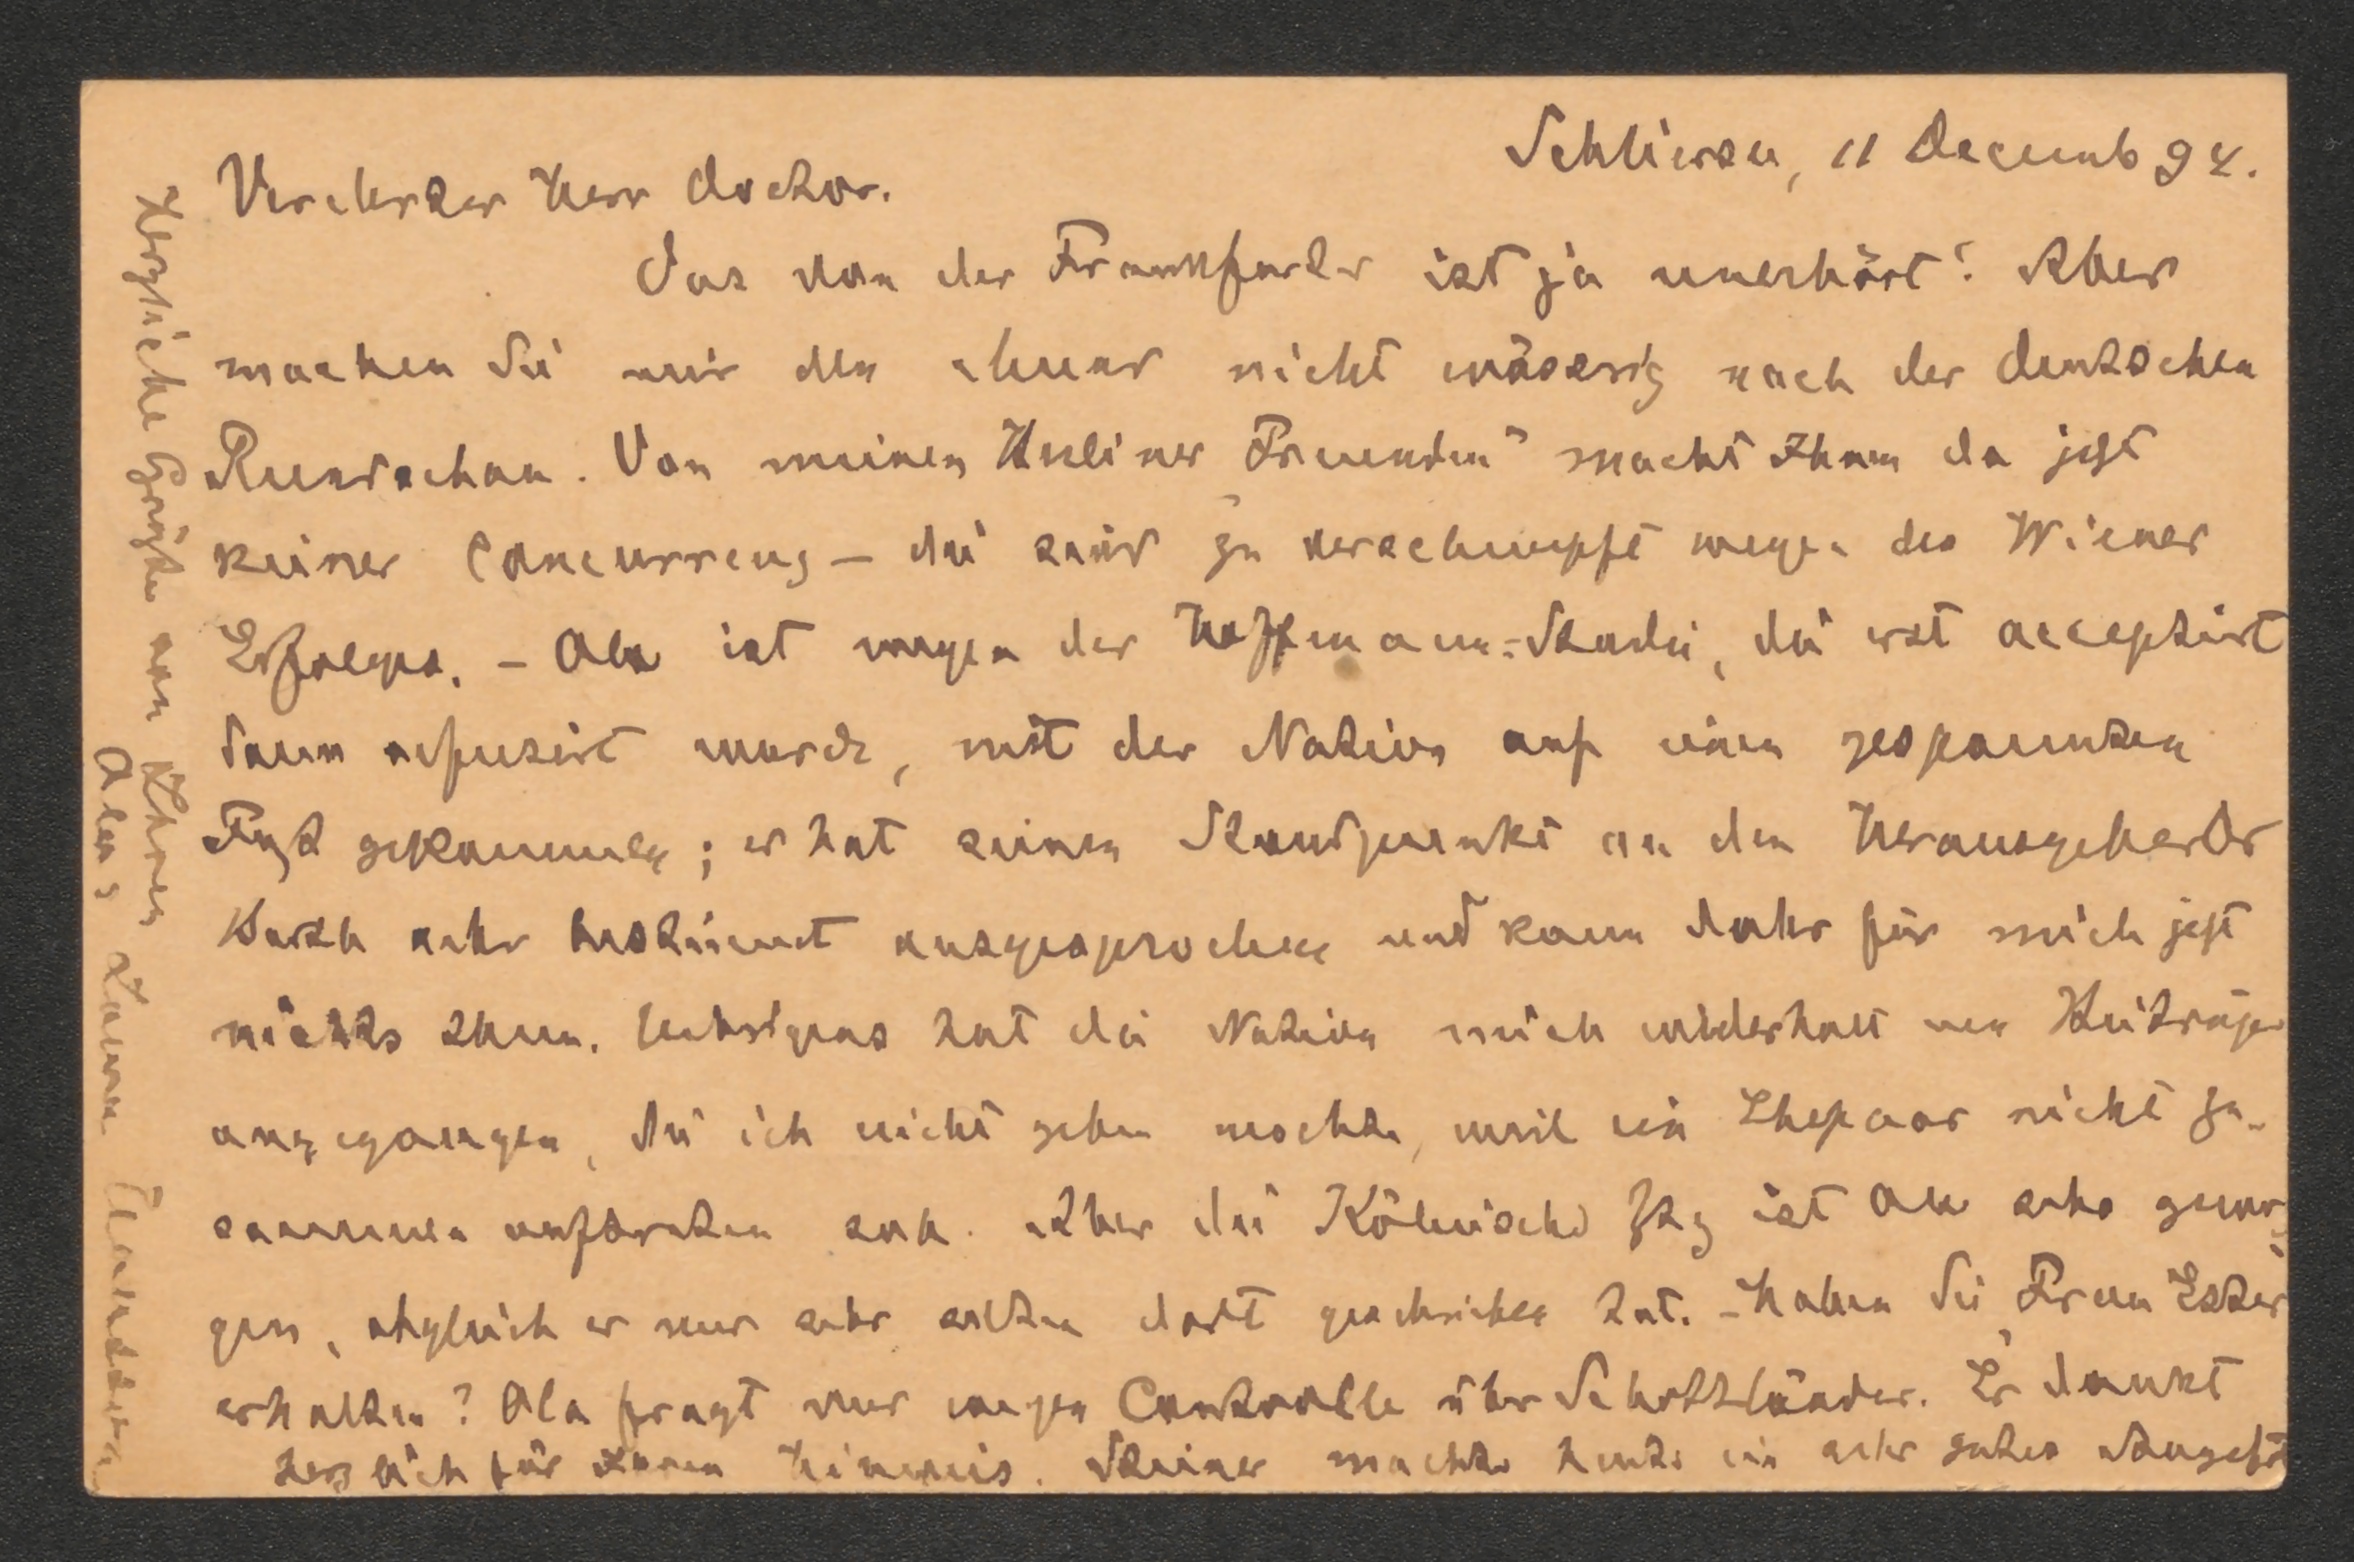 Schliersee, 11 Decemb 94.
Verehrter Herr Doctor.
Das von der Frankfurter ist ja unerhört! Aber
machen Sie mir den Mund nicht wässrig nach der Deutschen
Rundschau. Von meinen Berliner „Freunden“ macht Ihnen da jetzt
keiner Concurrenz – die sind zu verschnupft wegen des Wiener
Erfolges. – Ola ist wegen der Hoffmann-Studie, die erst acceptirt
dann refusirt wurde, mit der Nation auf einen gespannten
Fuß gekommen; er hat seinen Standpunkt an den Herausgeber Dr
Barth sehr bestimmt ausgesprochen und kann daher für mich jetzt
nichts thun. Uebrigens hat die Nation mich widerholt um Beiträge
angegangen, die ich nicht geben mochte, weil ein Ehepaar nicht zu-
sammen auftreten soll. Aber die Kölnische Ztg ist Ola sehr gewo-
gen, obgleich er nur sehr selten dort geschrieben hat. – Haben Sie „Frau Ester“
erhalten? Ola fragt nur wegen Controlle über Schottländer. Er dankt
herzlich für Ihren Hinweis. Steiner machte heute ein sehr gutes Angebot
Herzliche Grüße von Ihrer
Olas Laura Marholm